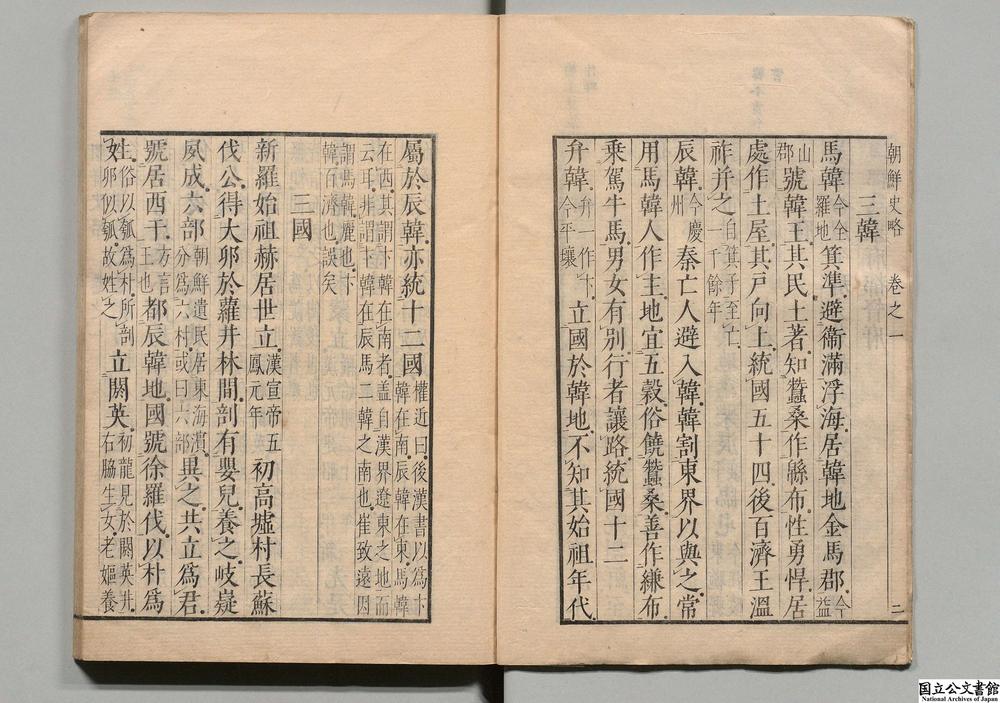 朝鮮史略 卷之一 二
三韓
馬韓今全羅地箕準避衞滿浮海居韓地金馬郡今益
山郡號韓王其民土著知蠶桑作緜布性勇悍居
處作土屋其戶向上統國五十四後百濟王溫
祚并之自箕子至亡一千餘年
辰韓今慶州秦亡人避入韓韓割東界以與之常
用馬韓人作主地宜五穀俗饒蠶桑善作縑布
乘駕牛馬男女有別行者讓路統國十二
弁韓弁一作卞今平壤立國於韓地不知其始祖年代
屬於辰韓亦統十二國權近曰後漢書以爲卞韓在南辰韓在東馬韓
在西其謂卞韓在南者盖自漢界遼東之地而云耳非謂卞韓在辰馬二韓之南也崔致遠因
謂馬韓麗也卞韓百濟也誤矣
三國
新羅始祖赫居世立漢宣帝五鳳元年初高墟村長蘇
伐公得大卵於蘿井林間剖有嬰兒養之岐嶷
夙成六部朝鮮遺民居東海濵分爲六村或曰六部異之共立爲君
號居西干方言王也都辰韓地國號徐羅伐以朴爲
姓俗以瓠爲朴所剖之卵似瓠故姓之立閼英初龍見於閼英井右脇生女老嫗養
国立公文書館
National Archives of Japan